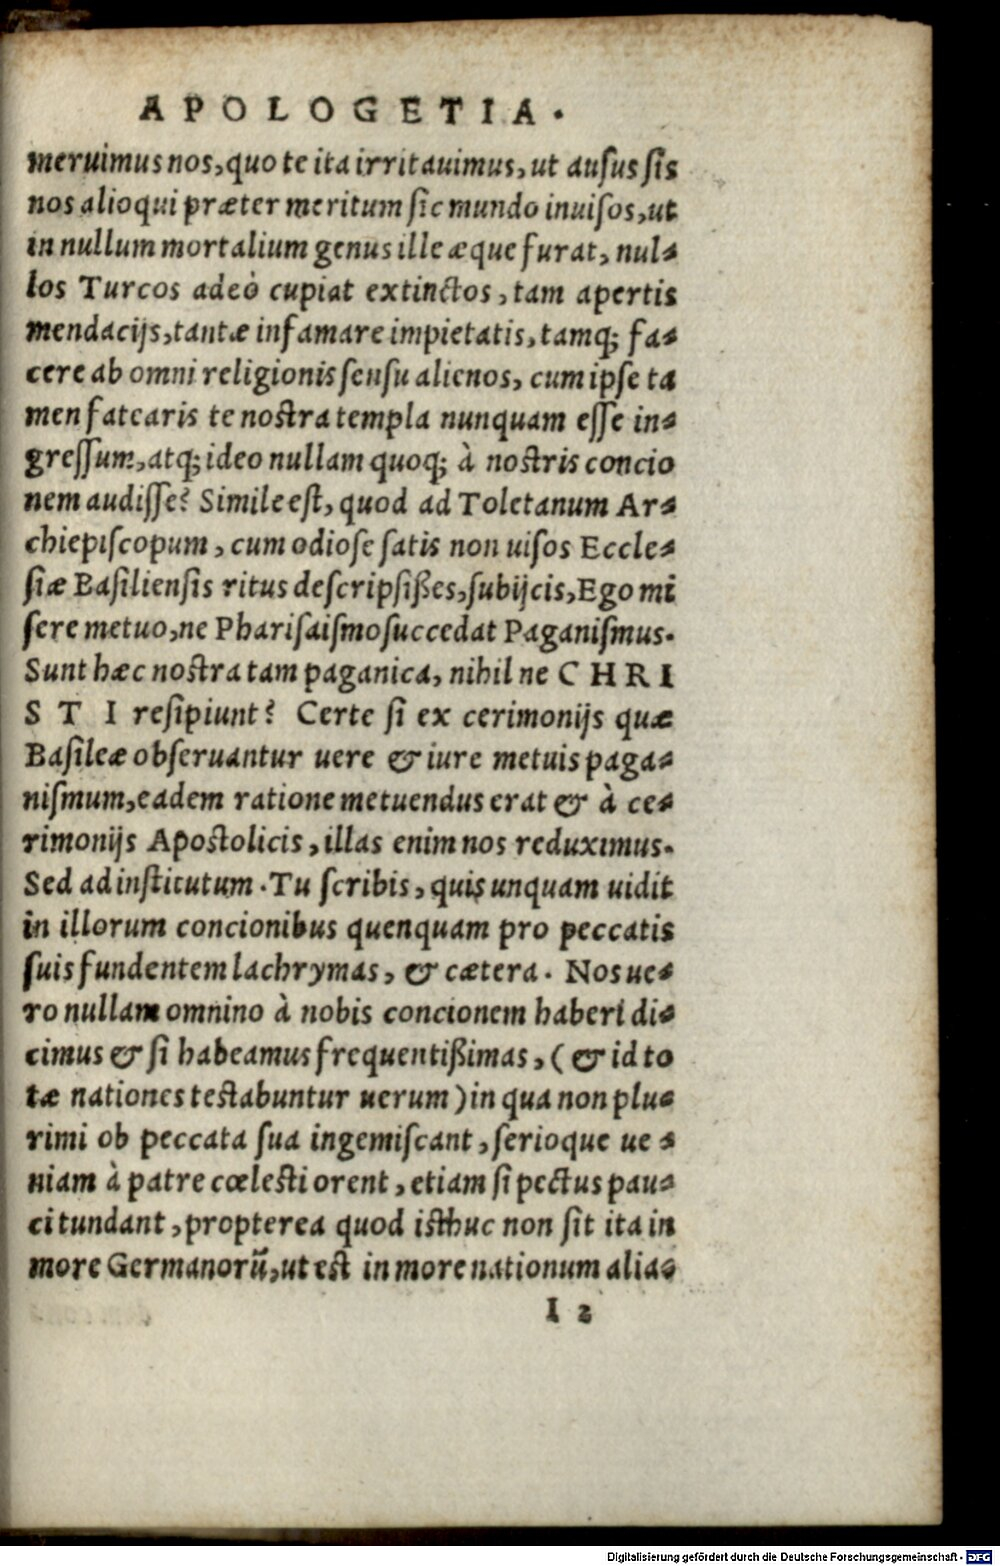 APOLOGETIA.
meruimus nos, quo te ita irritauimus, ut ausus sis
nos alioqui præter meritum sic mundo inuisos, ut
in nullum mortalium genus ille æque furat, nul-
los Turcos adeò cupiat extinctos, tam apertis
mendacijs, tantæ infamare impietatis, tamq; fa-
cere ab omni religionis sensu alienos, cum ipse ta
men fatearis te nostra templa nunquam esse in-
gressum, atq; ideo nullam quoq; à nostris concio
nem audisse? Simile est, quod ad Toletanum Ar-
chiepiscopum, cum odiose satis non uisos Eccle-
siæ Basiliensis ritus descripsißes, subijcis, Ego mi
sere metuo, ne Pharisaismo succedat Paganismus.
Sunt hæc nostra tam paganica, nihil ne CHRI
STI resipiunt? Certe si ex cerimonijs quæ
Basileæ obseruantur uere & iure metuis paga-
nismum, eadem ratione metuendus erat & à ce-
rimonijs Apostolicis, illas enim nos reduximus.
Sed ad institutum. Tu scribis, quis unquam uidit
in illorum concionibus quenquam pro peccatis
suis fundentem lachrymas, & cætera. Nos ue-
ro nullam omnino à nobis concionem haberi di-
cimus & si habeamus frequentißimas, (& id to
tæ nationes testabuntur uerum) in qua non plu-
rimi ob peccata sua ingemiscant, serioque ue-
niam à patre cœlesti orent, etiam si pectus pau-
ci tundant, propterea quod isthuc non sit ita in
more Germanorũ, ut est in more nationum alia-
I 2
Digitalisierung gefördert durch die Deutsche Forschungsgemeinschaft - DFG